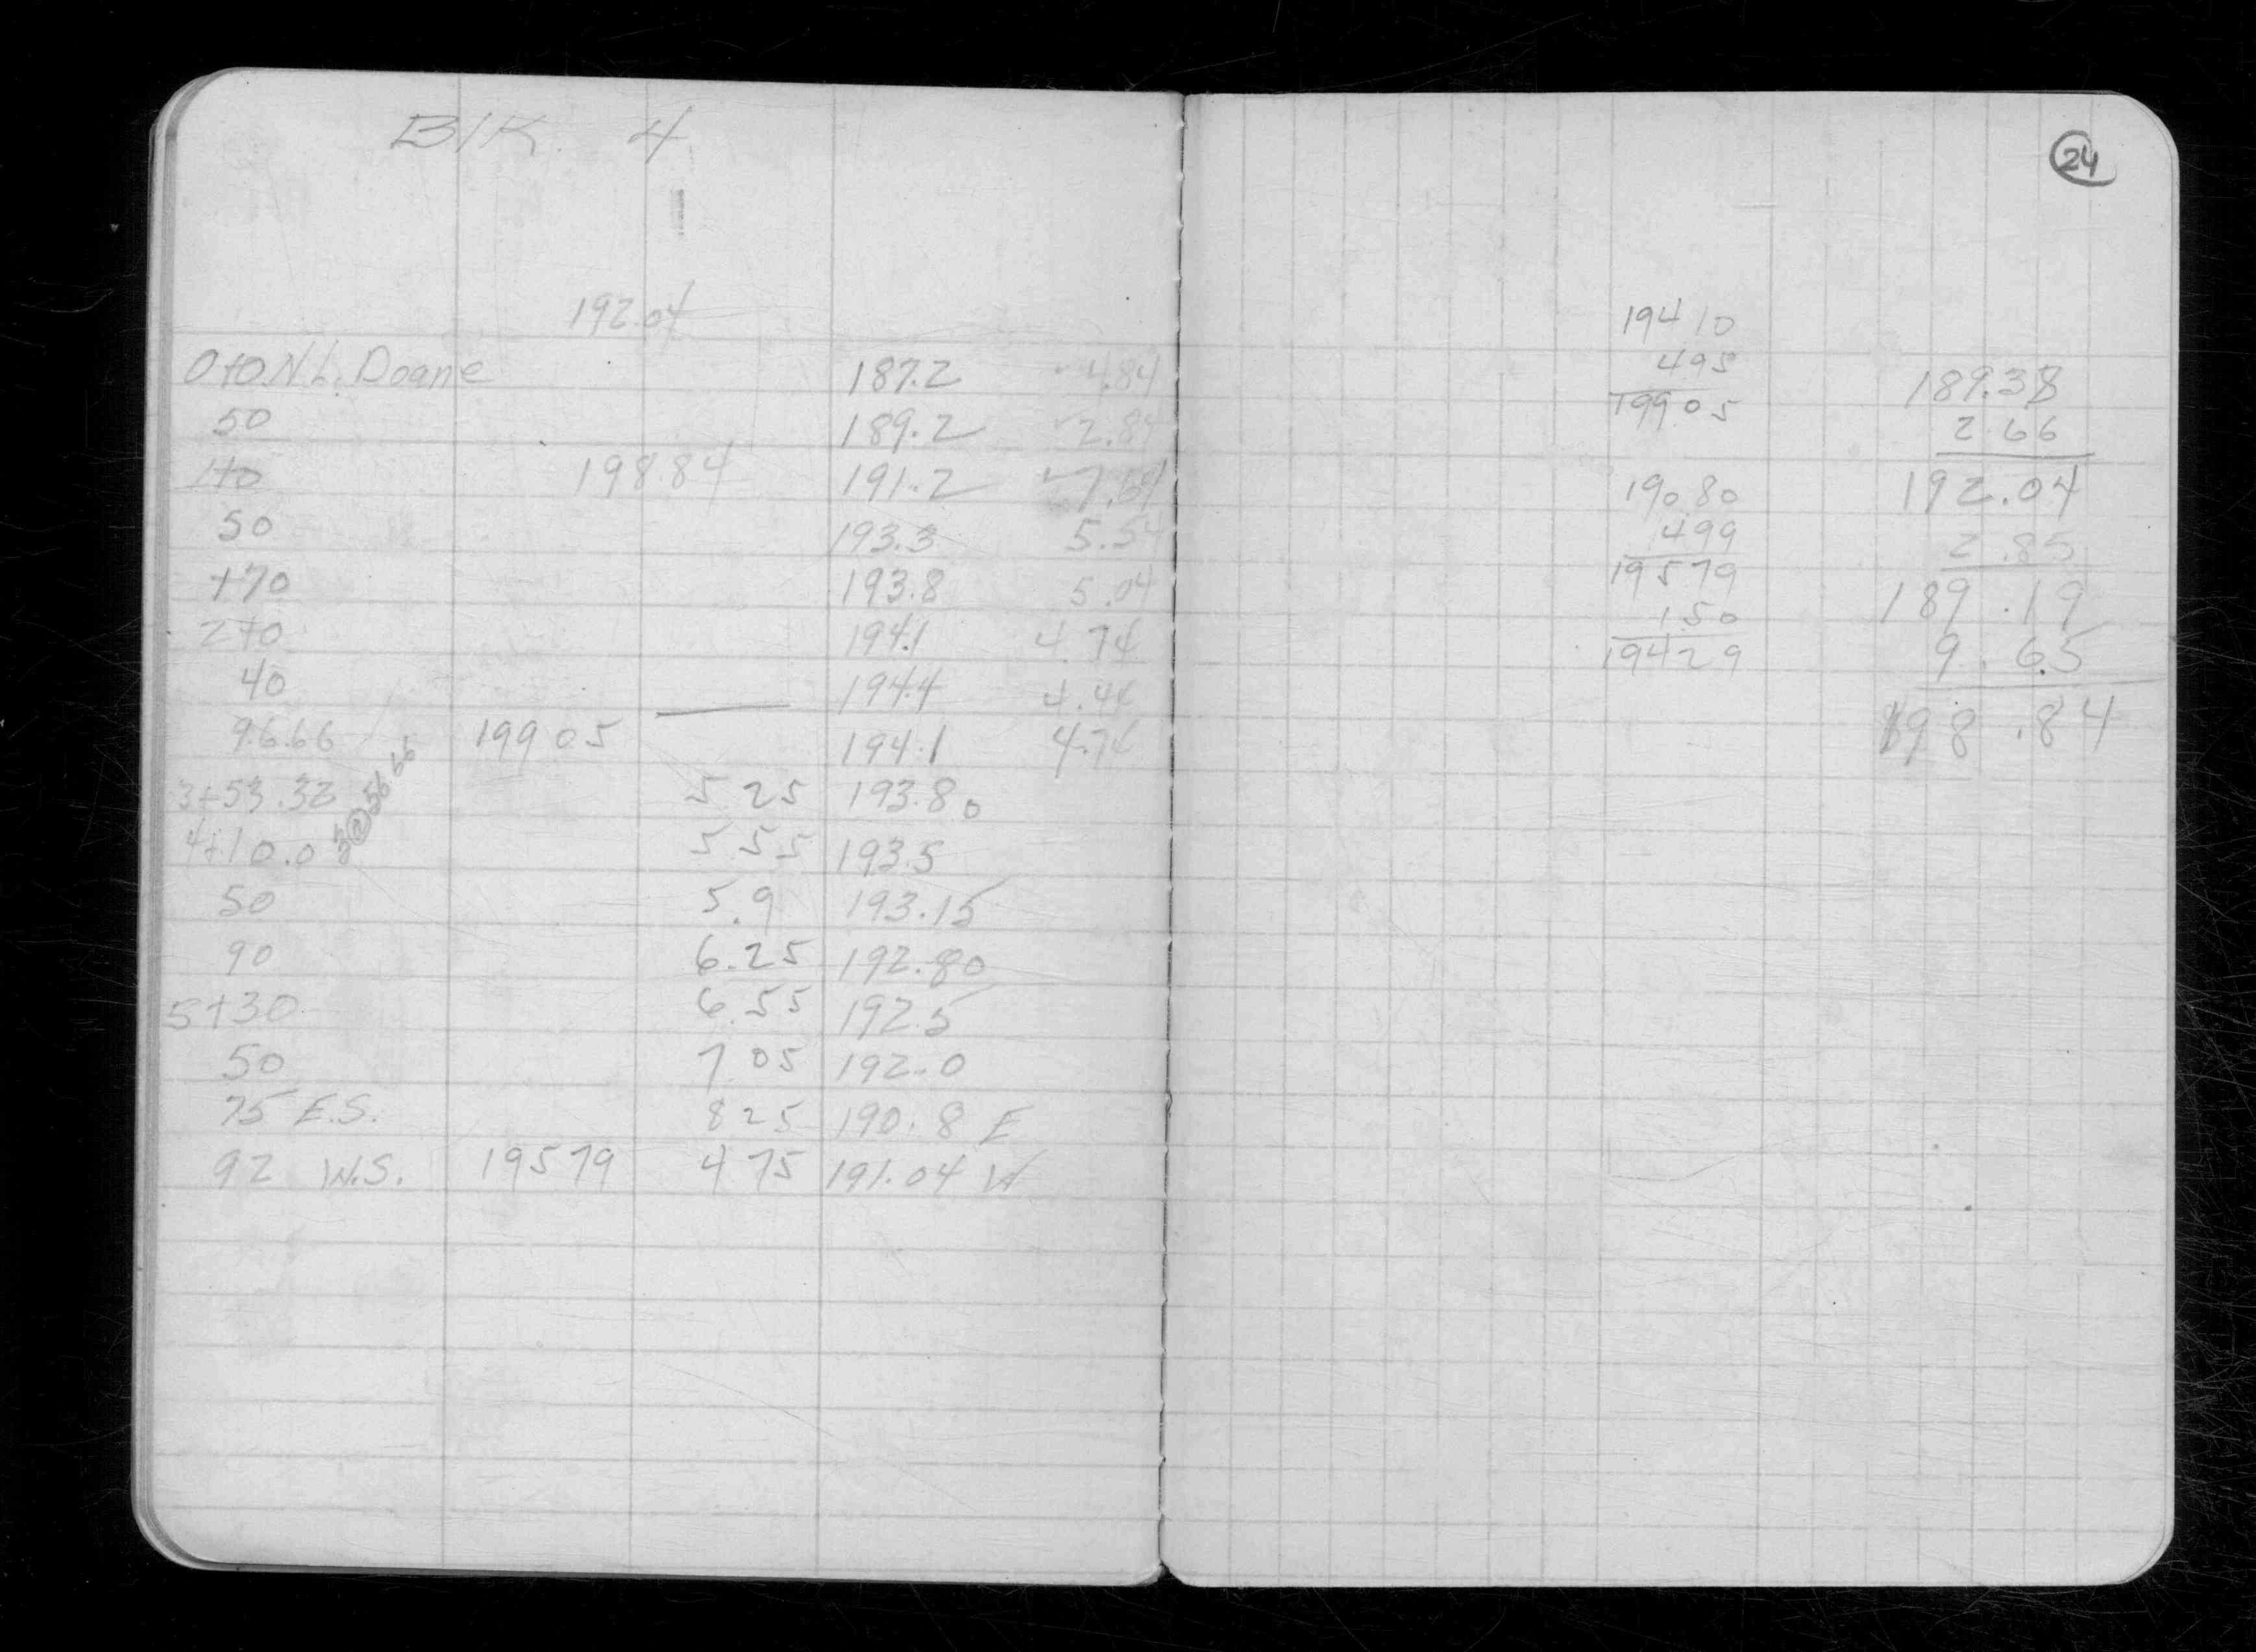 Blk. 4
192.04
0+0 N.L. Doane 187.2 4.84
50 189.2 2.84
1+0 198.84 191.2 7.64
50 193.3 5.54
+70 193.8 5.04
2+0 194.1 4.74
40 194.4 4.44
96.66 199 05 194.1 4.74
3+53.32 5 25 193.80
4+10.0 5 55 193.5
50 5.9 193.15
90 6.25 192.80
5+30 6.55 192.5
50 7 05 192.0
75 E.S. 8 25 190.8 E
92 W.S. 195 79 4 75 191.04 W
24
194 10
4 95
199 05
190 80
4 99
195 79
1 50
194 29
189.38
2.66
192.04
2.85
189.19
9.65
198.84